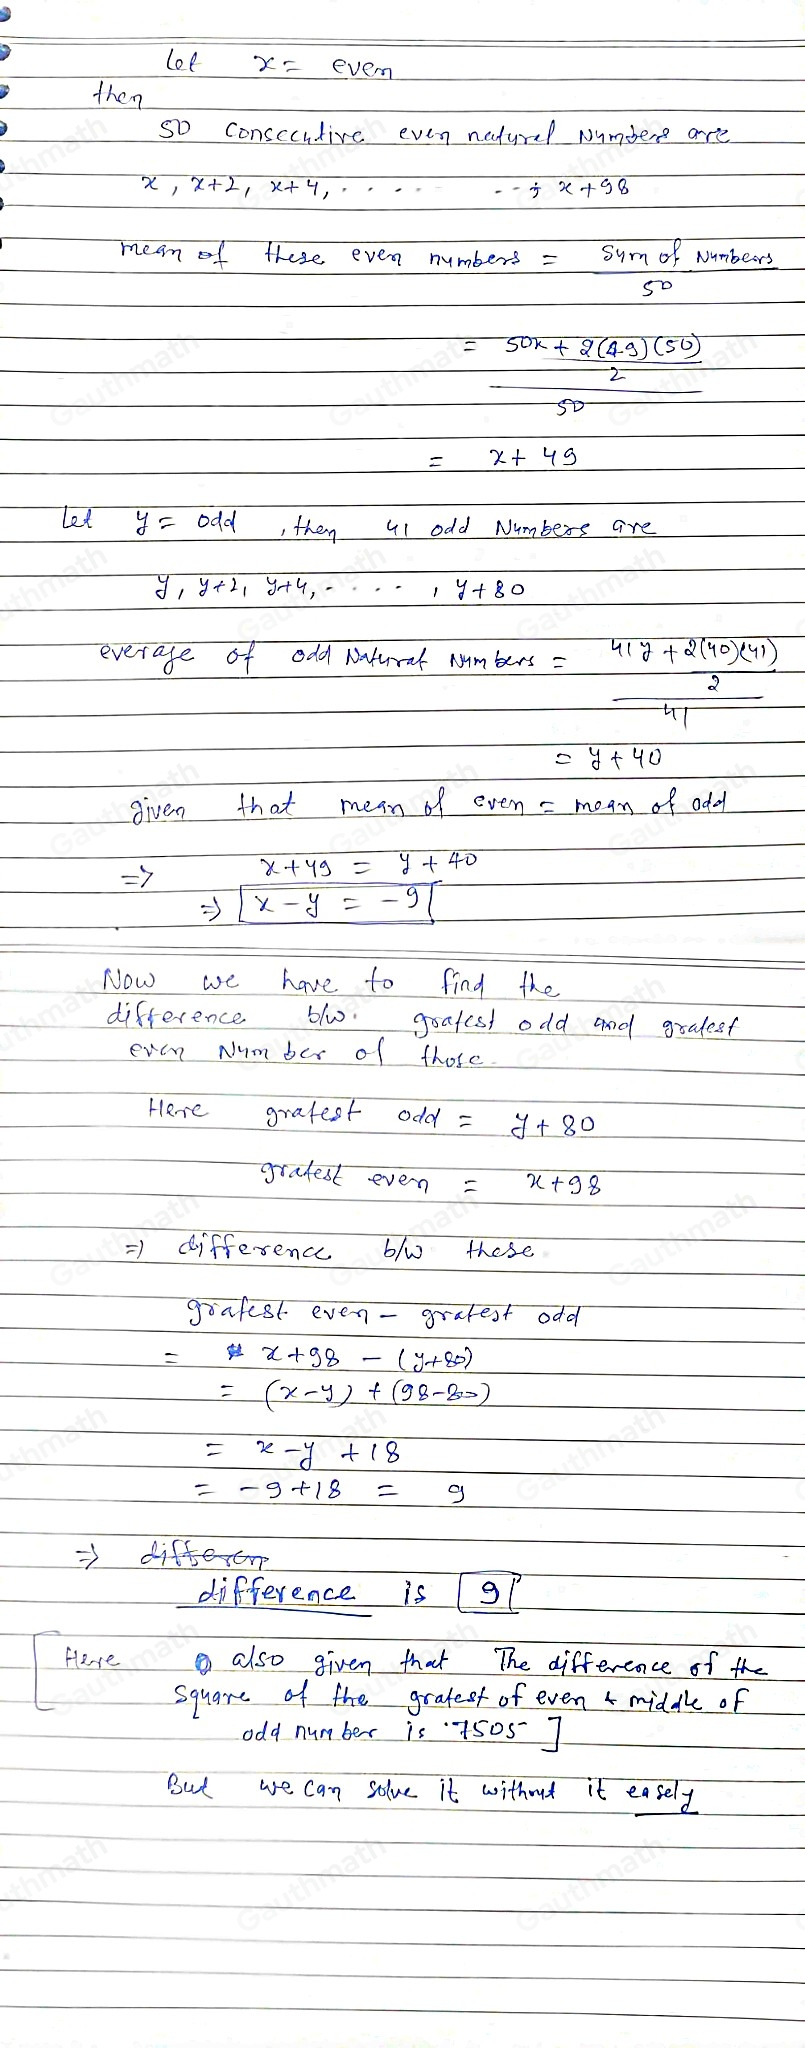 Let x = even
then
50 consecutive even natural Numbers are
x, x+2, x+4, . . . . . . . , x+98
mean of these even numbers = Sum of Numbers
50
= 50x + 2(49)(50)
2
50
= x + 49
Let y = odd , then 41 odd Numbers are
y, y+2, y+4, - . . . . , y+80
everage of odd Natural Numbers = 41y + 2(40)(41)
2
41
= y + 40
given that mean of even = mean of odd
=> x+49 = y + 40
=> x - y = -9
Now we have to find the
difference b/w. gratest odd and gratest
even Number of those.
Here gratest odd = y + 80
gratest even = x+98
=> difference b/w these.
gratest even - gratest odd
= x+98 - (y+80)
= (x-y) + (98-80)
= x-y +18
= -9+18 = 9
=> differen
difference is 9
[Here also given that The difference of the
square of the gratest of even & middle of
odd number is 7505]
But we can solve it without it easely
Gauthmath